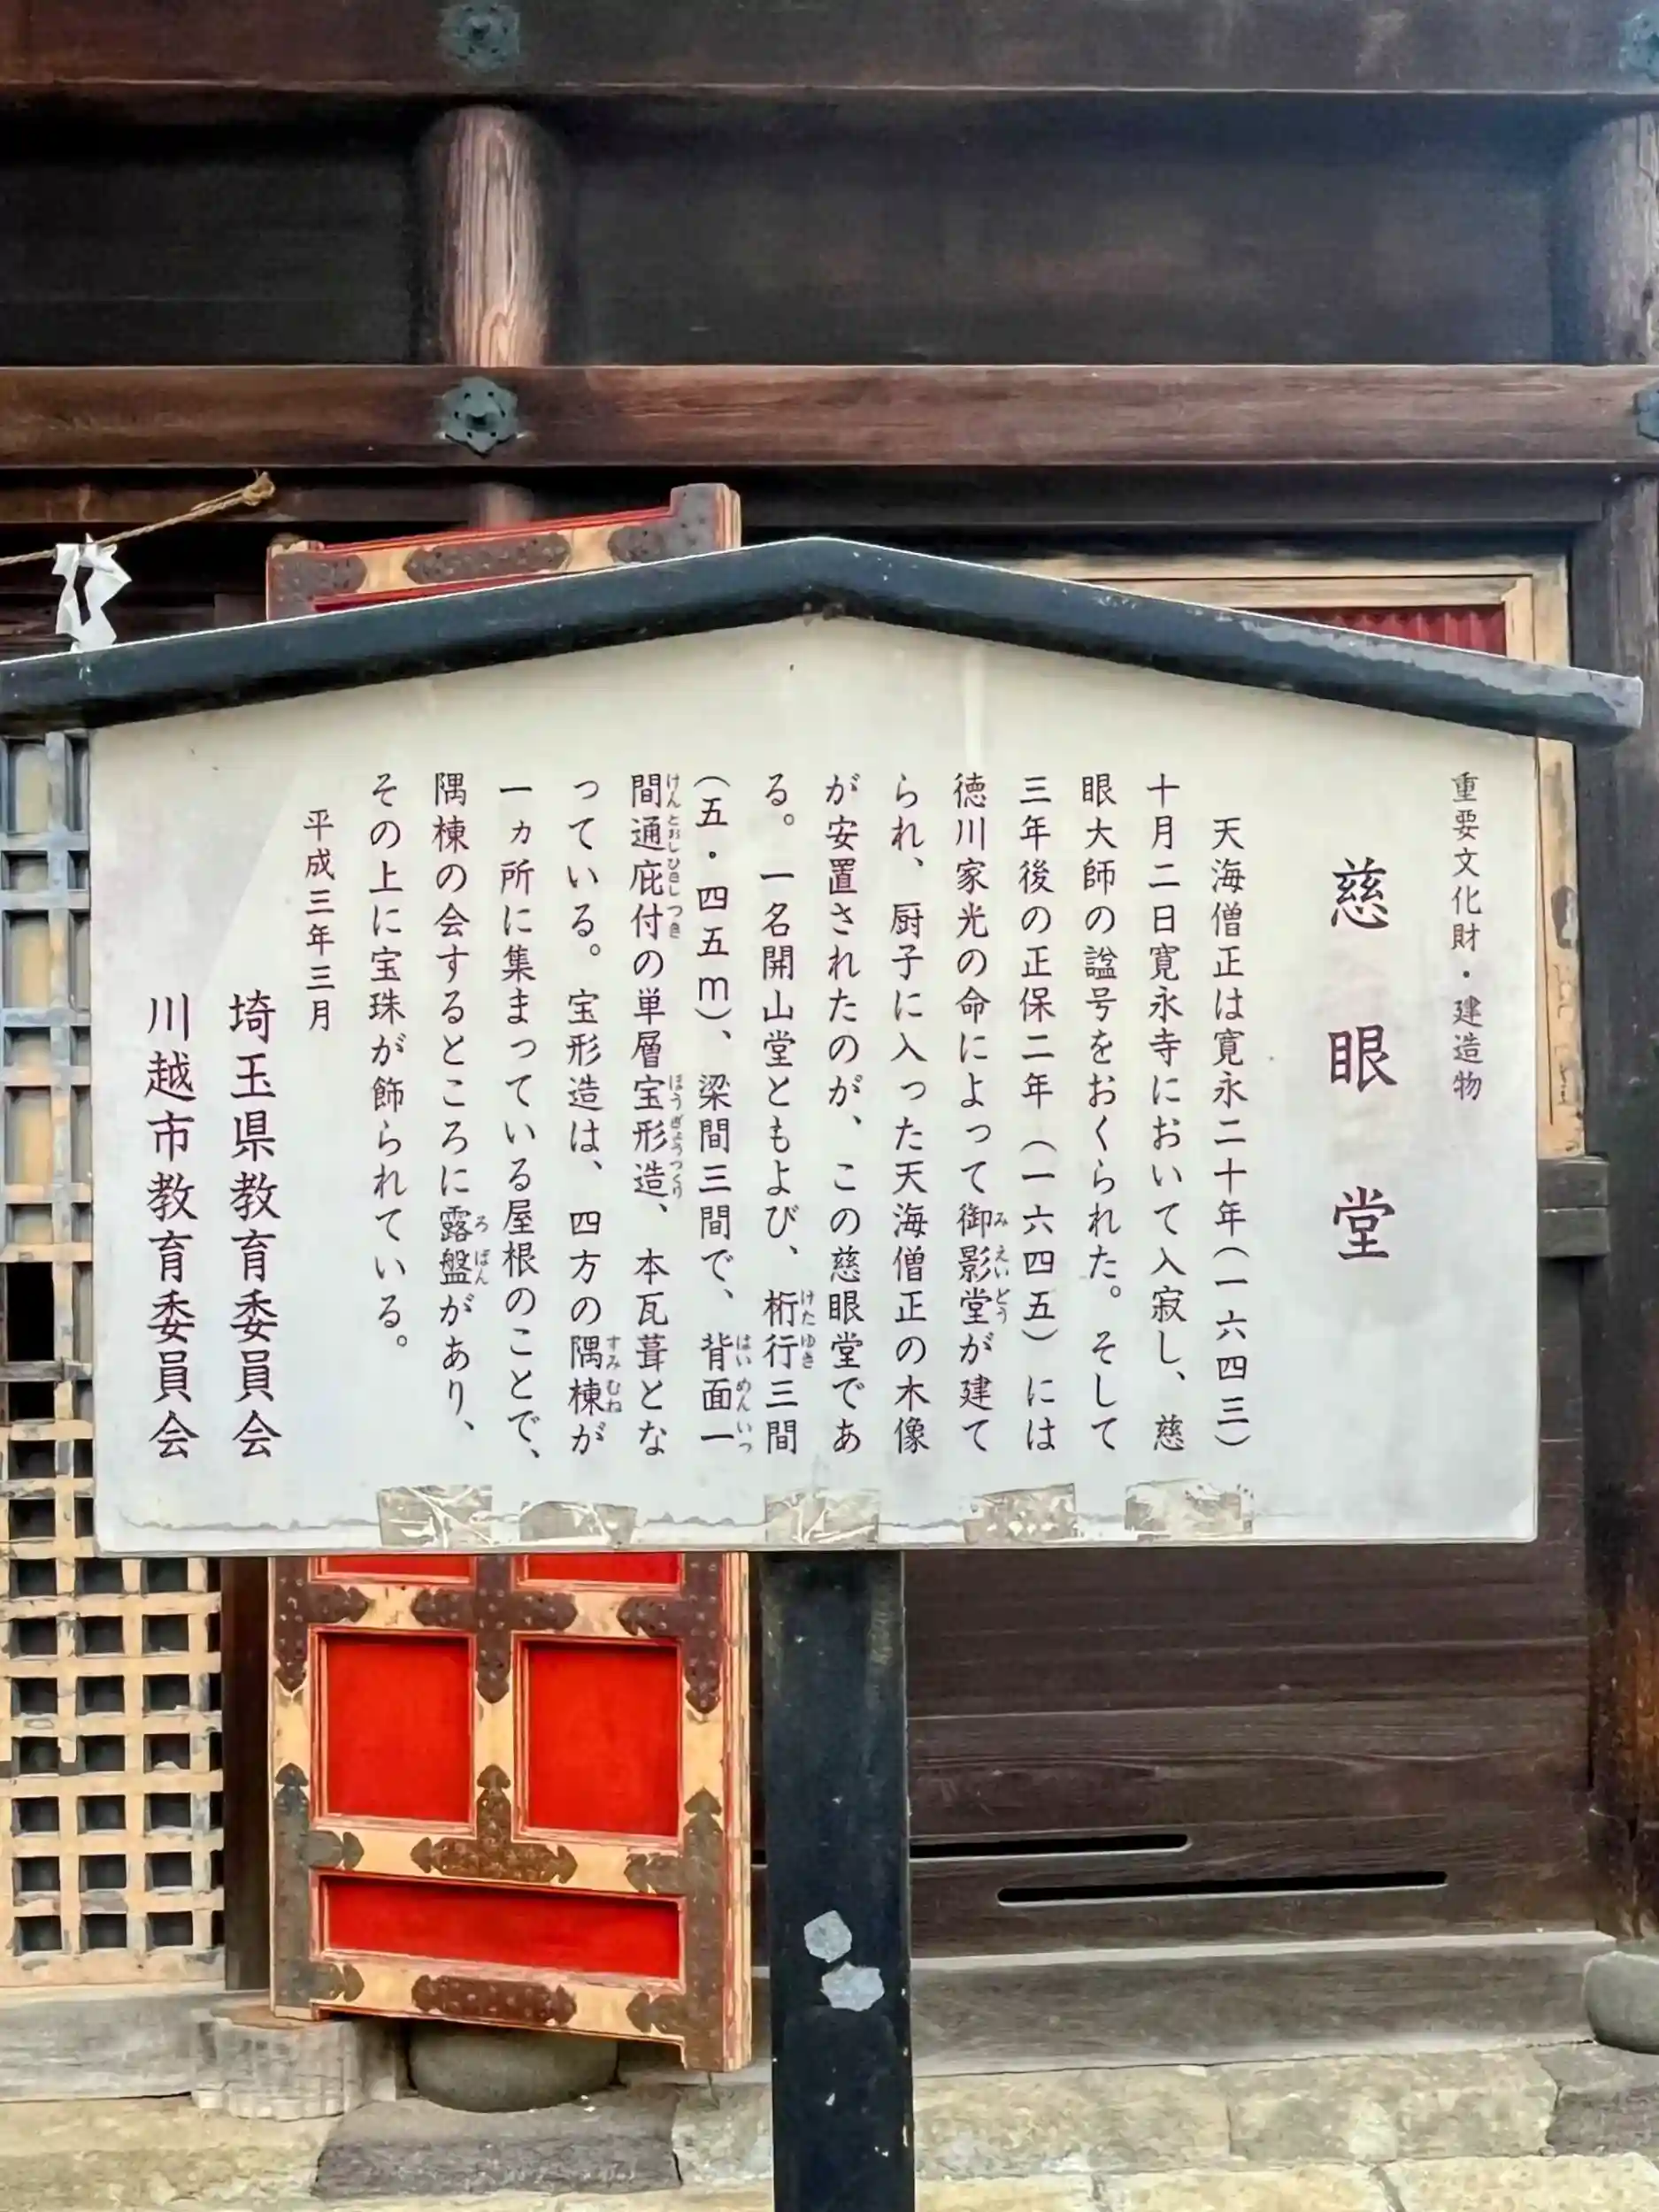 重要文化財・建造物
慈眼堂
天海僧正は寛永二十年(一六四三)
十月二日寛永寺において入寂し、慈
眼大師の諡号をおくられた。そして
三年後の正保二年(一六四五)には
徳川家光の命によって御影堂が建て
られ、厨子に入った天海僧正の木像
が安置されたのが、この慈眼堂であ
る。一名開山堂ともよび、桁行三間
(五・四五m)、梁間三間で、背面一
間通庇付の単層宝形造、本瓦葺とな
っている。宝形造は、四方の隅棟が
一ヵ所に集まっている屋根のことで、
隅棟の会するところに露盤があり、
その上に宝珠が飾られている。
平成三年三月
埼玉県教育委員会
川越市教育委員会